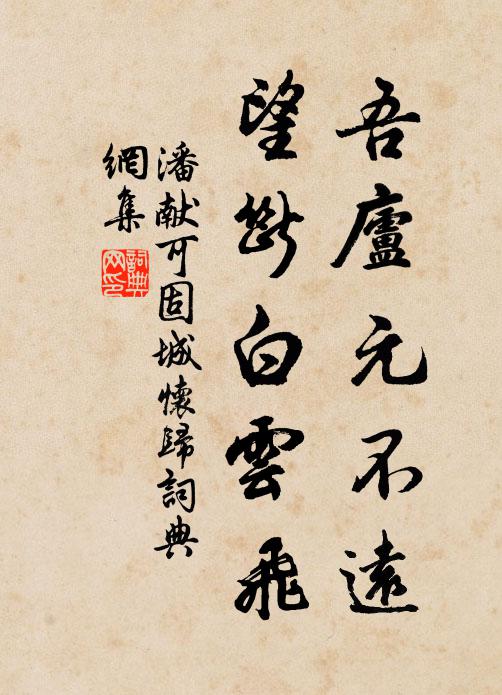 吾廬元不遠
望斷白雲飛
潘献可固城懷歸詞典
網集
詞典
网印